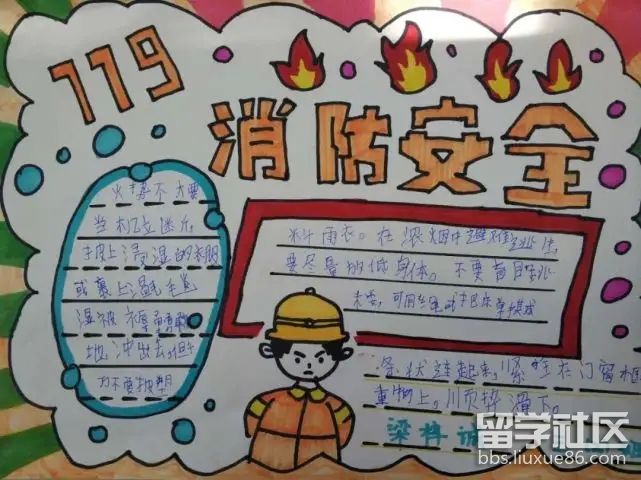 119
消防安全
火势不大要
当机立断,
披上浸湿的衣服
或裹上湿毛毯
湿被褥勇敢
地冲出去,但
不要披塑
料雨衣。在浓烟中避难逃生,
要尽量放低身体。不要盲目跳
条状连起来,紧拴在门窗框
重物上。顺势滑下。
梁梓诚
留学社区
bbs.liuxue86.com